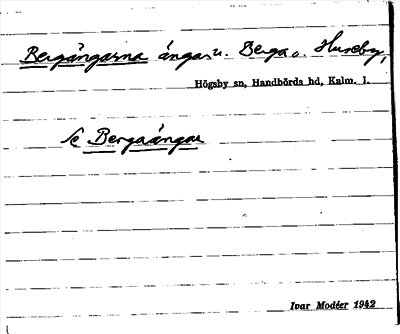 Bergångarna ängar u. Berga o. Huseby,
Högsby sn, Handbörds hd, Kalm. l.
Se Bergaängar
Ivar Modéer 1942